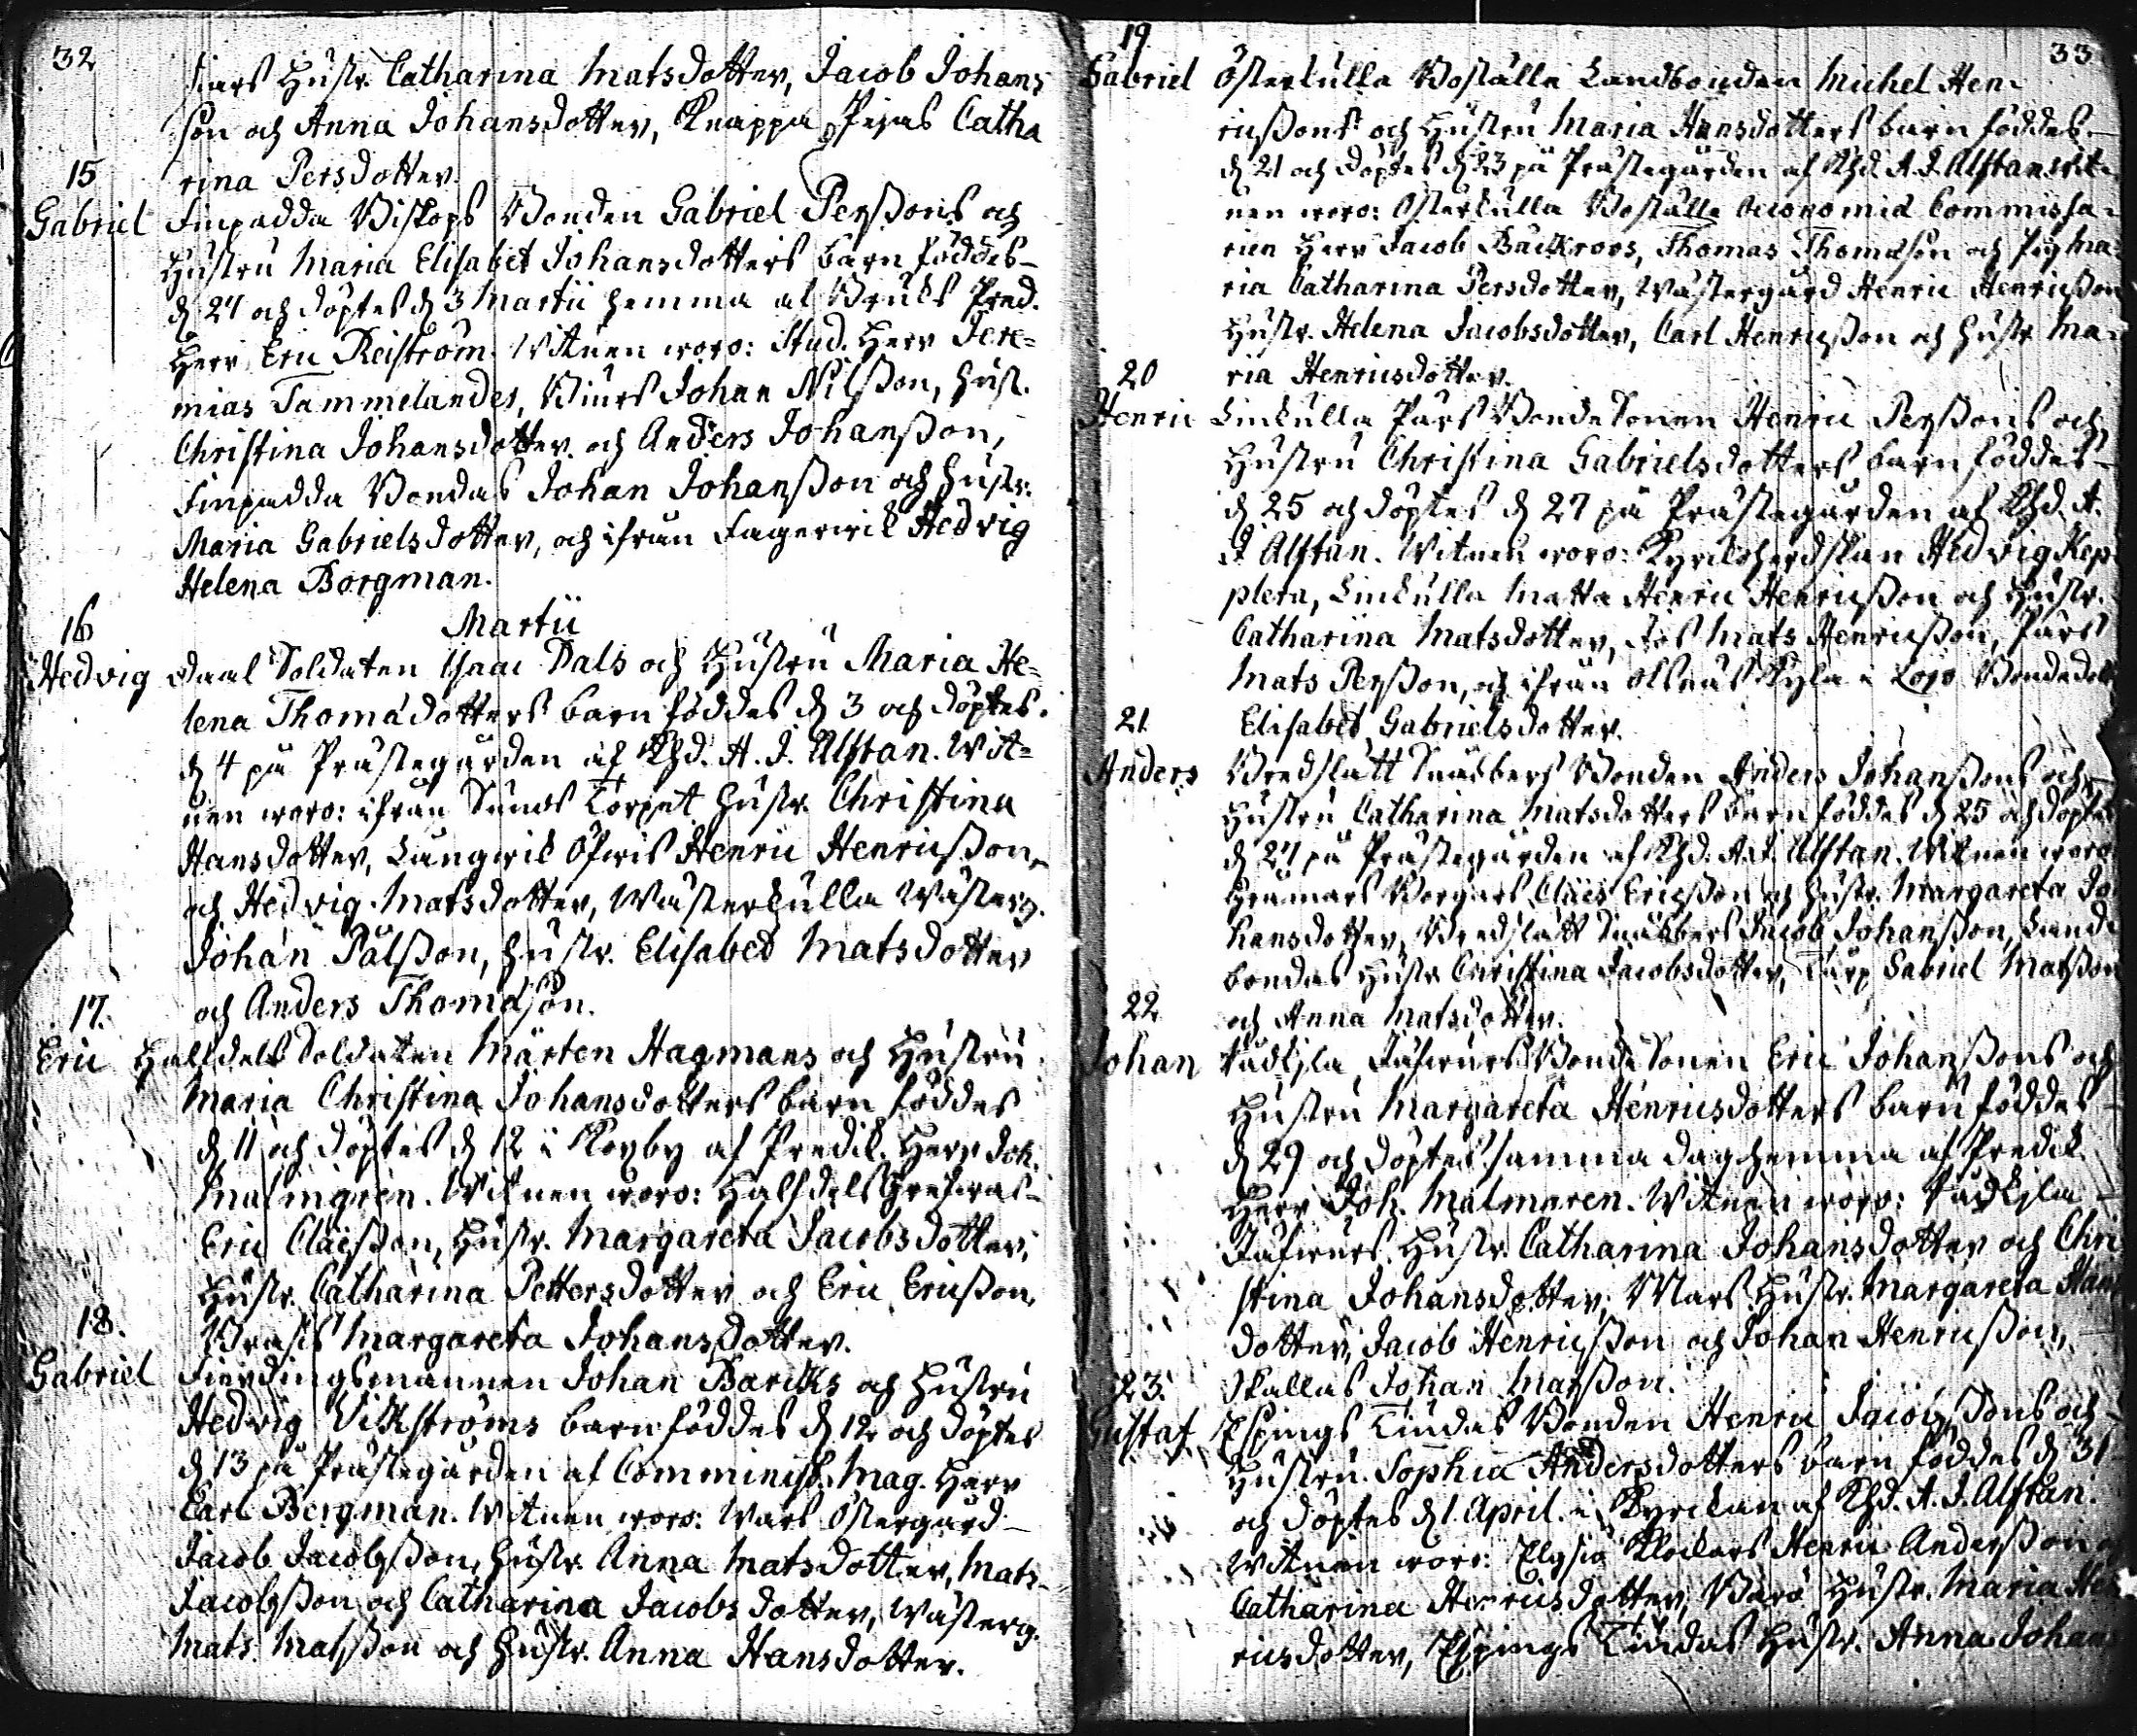 32
Hustr. Catharina Matsdotter, Jacob Johans
son och Anna Johansdotter, Knappa Catha
rina Persdotter.
15
Gabriel Finpadda Biskops Bonden Gabriel Perssons och
Hustru Maria Elisabet Johansdotters barn föddes
d. 27 och döptes d. 3 Martii hemma af Bruks Pred.
Herr Eric Reiström. Witnen woro: Stud. Herr Jere=
mias Tammelander, Johan Nilsson, Hust.
Christina Johansdotter och Anders Johansson,
Finpadda Bondas Johan Johansson och Hustr.
Maria Gabrielsdotter, och ifrån Fagerwik Hedvig
Helena Borgman.
Martii
16
Hedvig Daal Soldaten Isaac Dals och Hustru Maria He=
lena Thomædotters barn föddes d. 3 och döptes
d. 4 på Prästegården af Khd. A. J. Alftan. Wit=
nen woro: ifrån Sunds Torpet Hustr. Christina
Hansdotter, Långwik Öfwis Henric Henricsson
och Hedvig Matsdotter, Wästerkulla Wästerg.
Johan Pålsson, Hustr. Elisabet Matsdotter
och Anders Thomasson.
17.
Eric Halfdels Soldaten Mårten Hagmans och Hustru
Maria Christina Johansdotters barn föddes
d. 11 och döptes d. 12 i Roxby af Predik. Herr Joh.
Malmgren. Witnen woro: Halfdels
Eric Claësson, Hustr. Margareta Jacobsdotter,
Hustr. Catharina Pettersdotter och Eric Ericsson,
Margareta Johansdotter.
18.
Gabriel Fierdingsmannen Johan Barcks och Hustru
Hedvig Vikströms barn föddes d. 12 och döptes
d. 13 på Prästegården af Comminist. Mag. Herr
Carl Bergman. Witnen woro: Wars Östergård
Jacob Jacobsson, Hustr. Anna Matsdotter, Mats
Jacobsson och Catharina Jacobsdotter, Wästerg.
Mats Matsson och Hustr. Anna Hansdotter.
33
19
Gabriel Österkulla Boställe Landbonden Michel Hen=
ricssons och Hustru Maria Hansdotters barn föddes
d. 21 och döptes d. 23 på Prästegården af Khd. A. J. Alftan. Wit=
nen woro: Österkulla Boställe Oeconomiæ Commissa=
rien Herr Jacob Bäckroos, Thomas Thomasson och Pig. Ma=
ria Catharina Persdotter, Wästergård Henric Henricsson
Hustr. Helena Jacobsdotter, Carl Henricsson och Hustr. Ma=
ria Henricsdotter.
20
Henric Linkulla Pärs BondeSonen Henric Perssons och
Hustru Christina Gabrielsdotters barn föddes
d. 25 och döptes d. 27 på Prästegården af Khd. A.
J. Alftan. Witnen woro: Kyrkoherdskan Hedvig Kep
plera, Linkulla Matts Henric Henricsson och Hustr.
Catharina Matsdotter, Mats Henricsson, Pärs
Mats Persson, och ifrån Olsnäs Kyla i Lojo
Elisabet Gabrielsdotter.
21
Anders Bredslätt Snäsbers Bonden Anders Johanssons och
Hustru Catharina Matsdotters barn föddes d. 25 och döptes
d. 27 på Prästegården af Khd. A. J. Alftan. Witnen woro
Claës Ericsson och Hustr. Margareta Jo
hansdotter, Bredslätt Jacob Johansson, Land
bondas Hustr. Christina Jacobsdotter, Gabriel Matsson
och Anna Matsdotter.
22
Johan BondeSonen Eric Johanssons och
Hustru Margareta Henricsdotters barn föddes
d. 29 och döptes samma dag hemma af Predik.
Herr Joh. Malmgren. Witnen woro:
Hustr. Catharina Johansdotter och Chri
stina Johansdotter, Mars Hustr. Margareta Hans
dotter, Jacob Henricsson och Johan Henricsson,
Skallas Johan Matsson.
23.
Gustaf Espings Lindas Bonden Henric Jacobssons och
Hustru Sophia Andersdotters barn föddes d. 31
och döptes d. 1 April. i Kyrckan af Khd. A. J. Alftan.
Witnen woro: Elgsiö Klockars Henric Andersson
Catharina Henricsdotter, Barö Hustr. Maria Hen
ricsdotter, Espings Lindas Hustr. Anna Johans